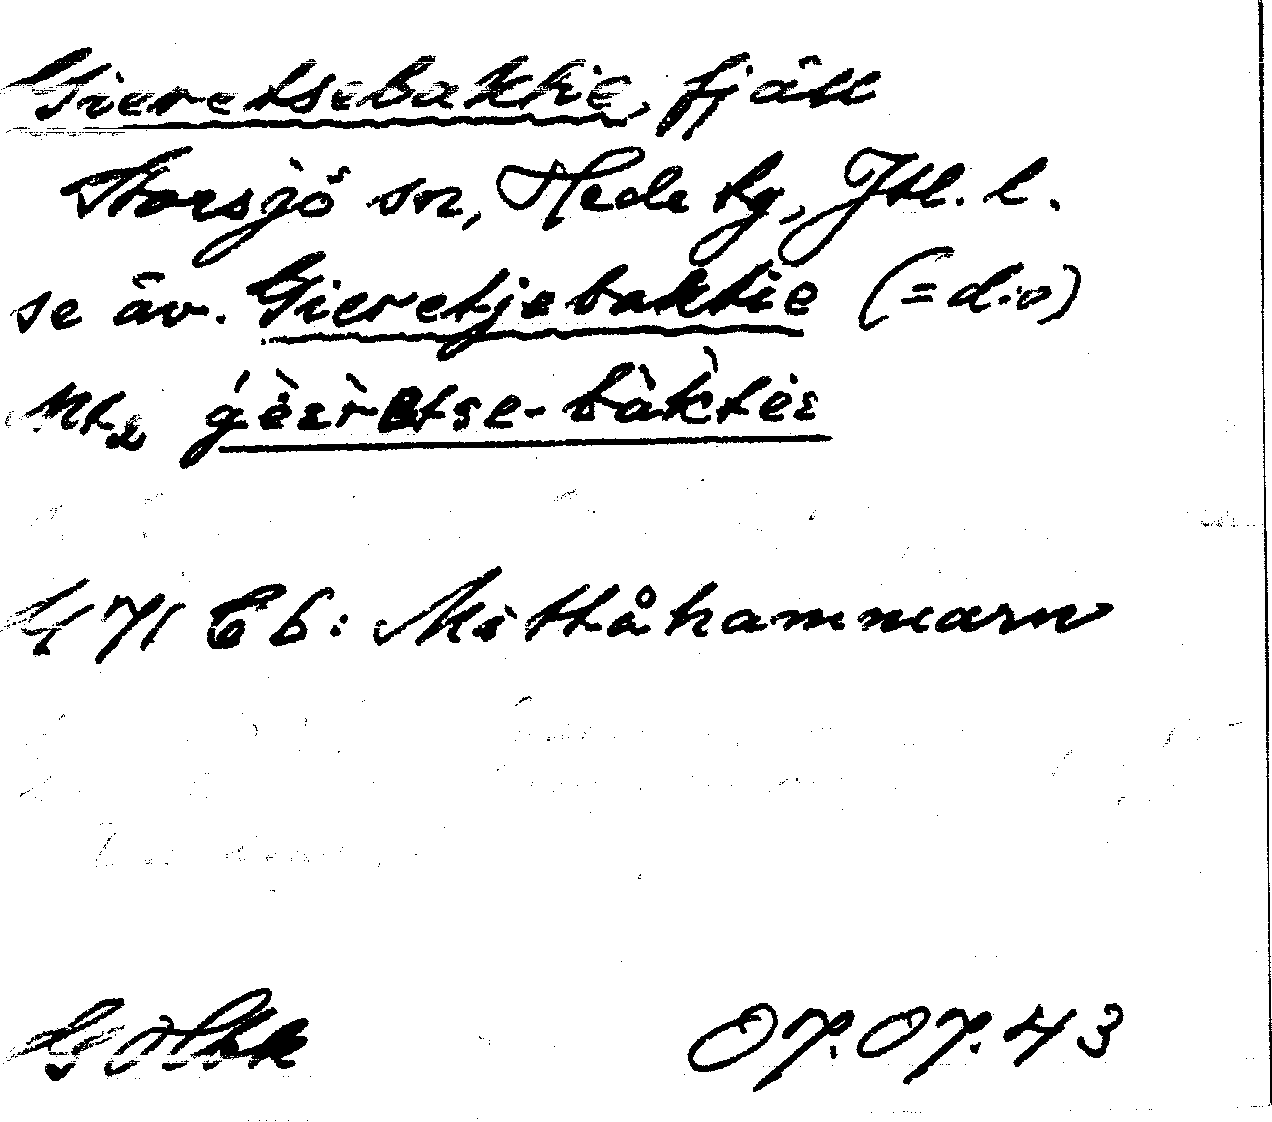 Gieretsebaktie, fjäll
Storsjö sn, Hede tg, Jtl. l.
se äv. Gieretjebaktie (=d:o)
géèrretse-bàktèe
Eb: Mittåhammarn
07.07.43